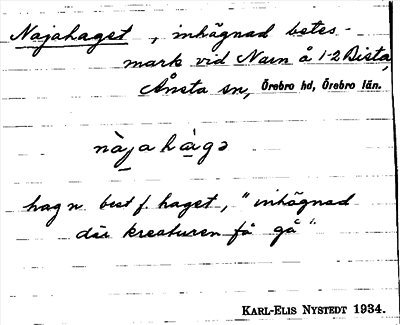 Najahaget, inhägnad betes-
mark vid Narn å 1-2 Bista,
Ånsta sn, Örebro hd, Örebro län.
nàjahàgə
hag n. best f. haget, "inhägnad
där kreaturen få gå".
KARL-ELIS NYSTEDT 1934.